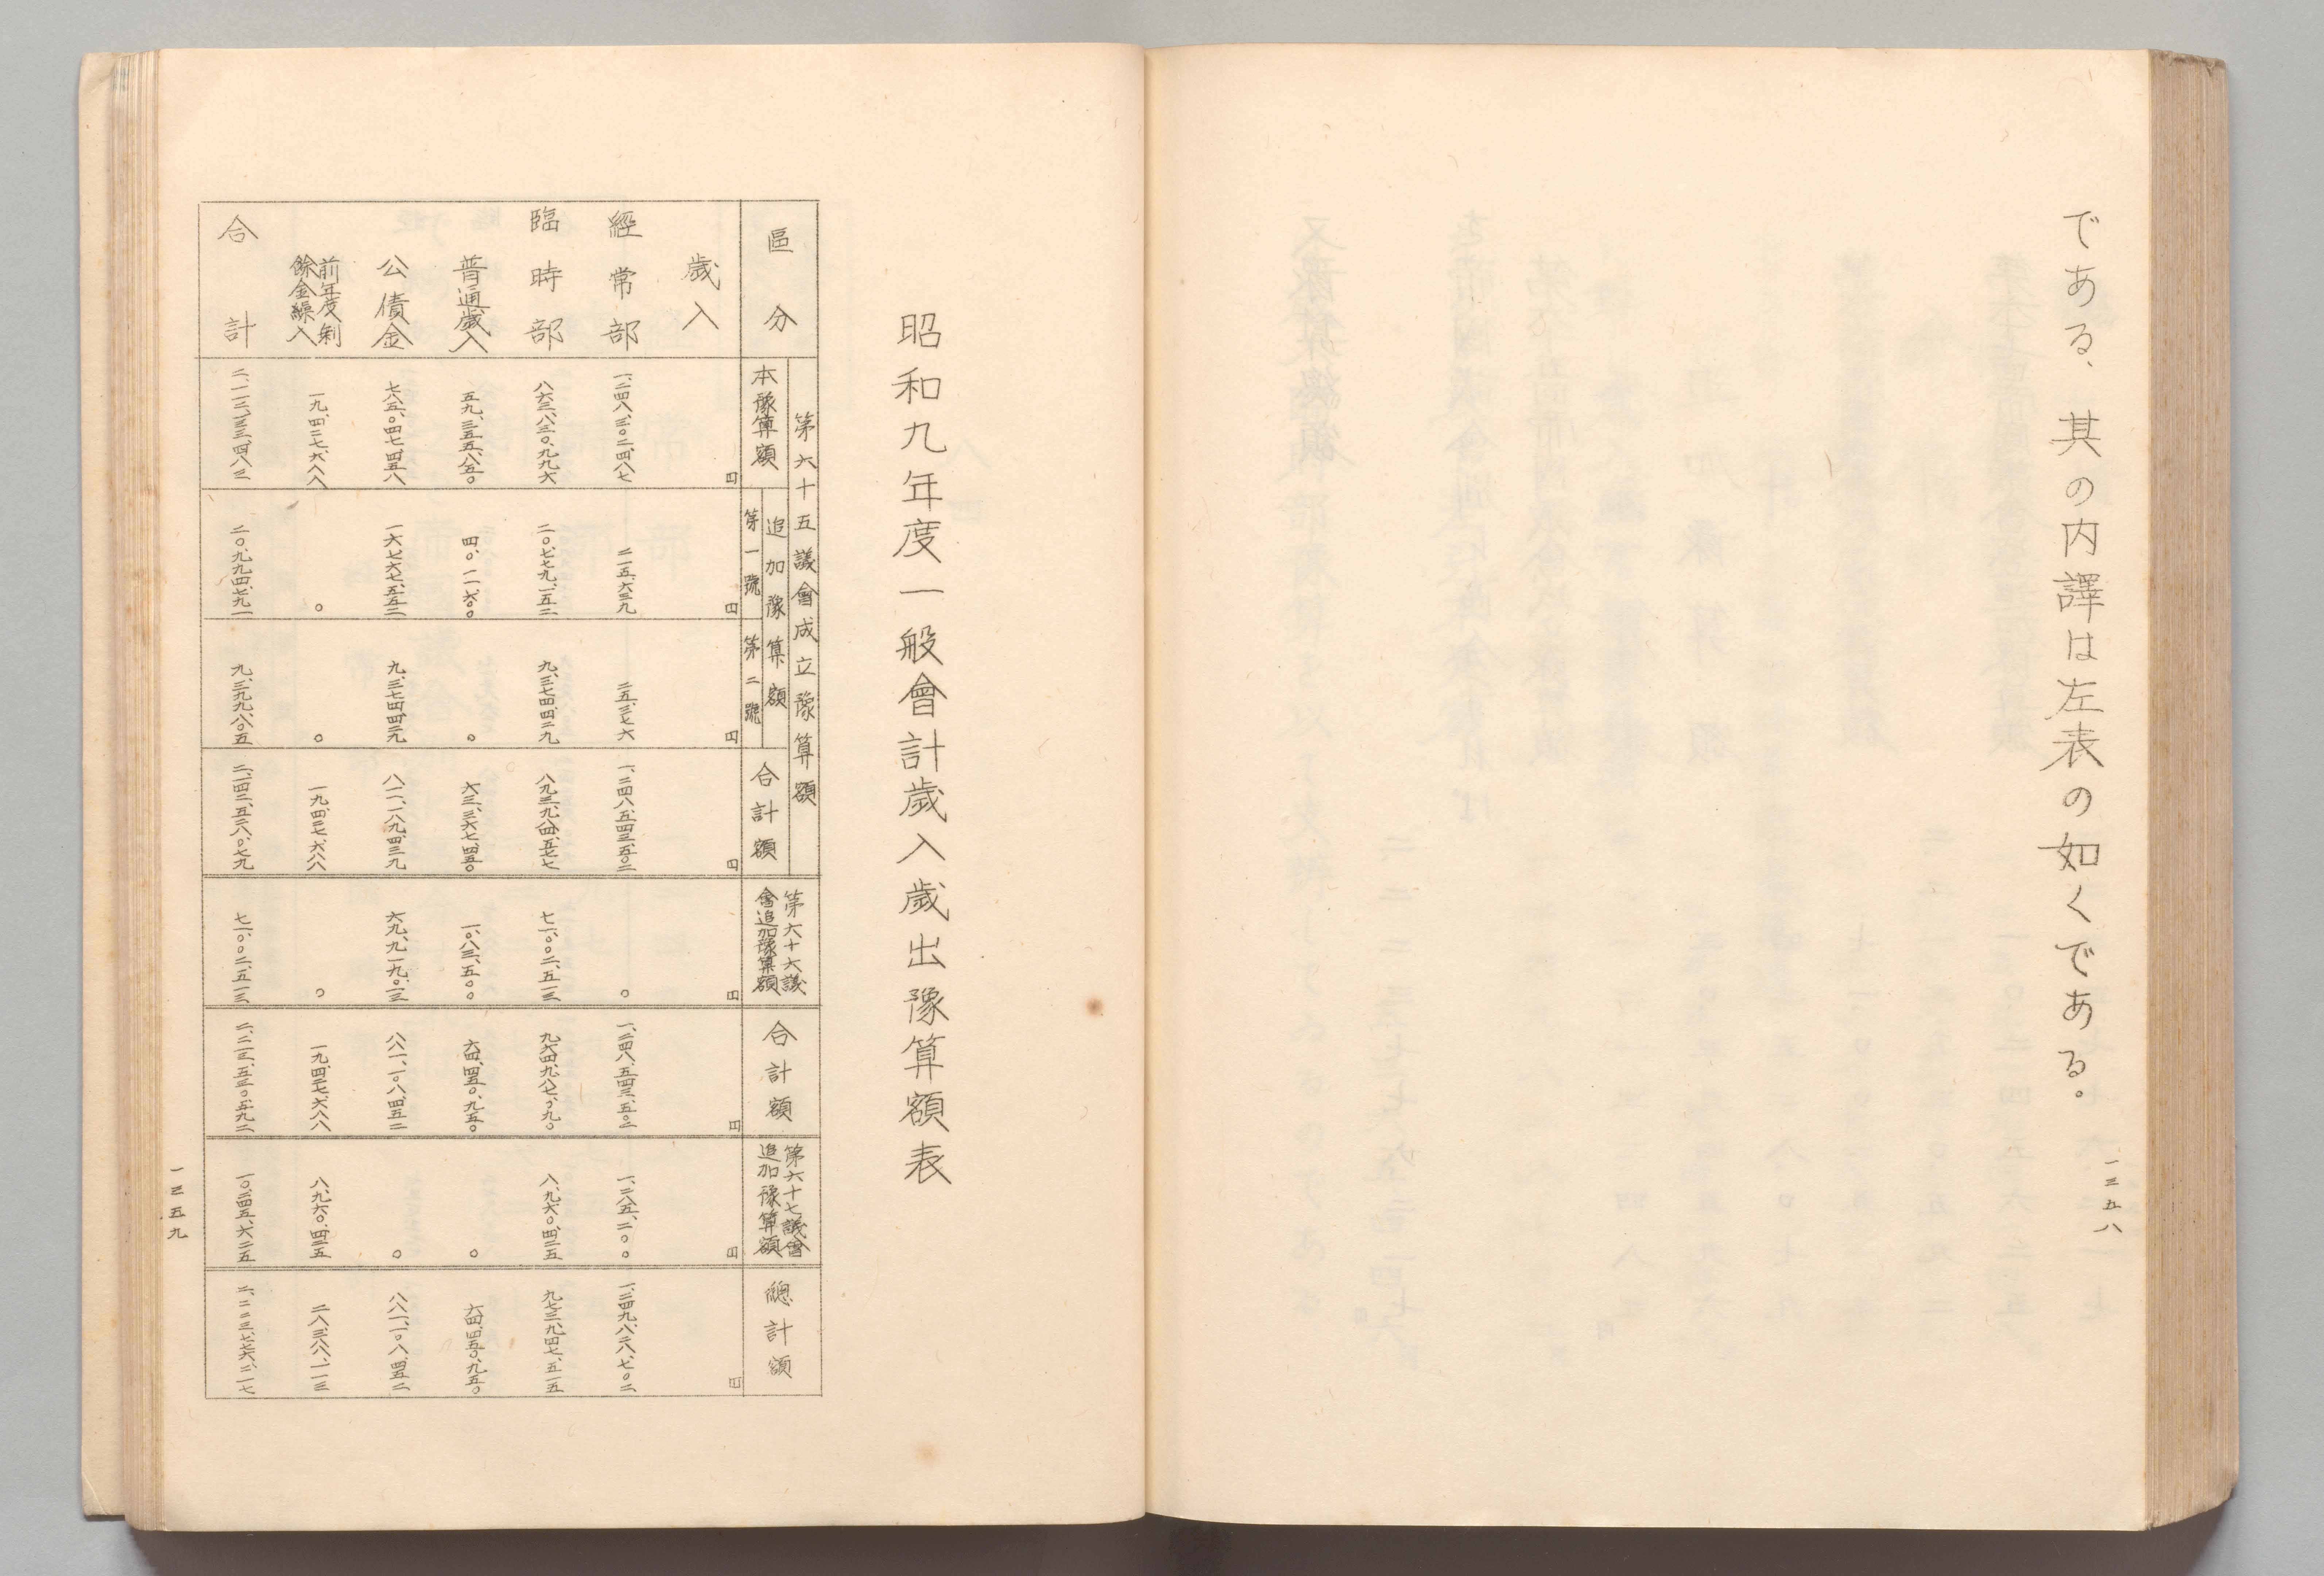 一三五八
である、其の内譯は左表の如くである。
昭和九年度一般會計歳入歳出豫算額表
區分
第六十五議會成立豫算額
本豫算額
追加豫算額
第一號
第二號
合計額
第六十六議
會追加豫算額
合計額
第六十七議會
追加豫算額
總計額
歳入 円 円 円 円 円 円 円 円
經常部 一、二四八、三〇二、四八七 二一五、六三九 二五、三七六 一、二四八、五四三、五〇二 〇 一、二四八、五四三、五〇二 一、二八五、二〇〇 一、二四九、八二八、七〇二
臨時部 八六三、八三〇、九九六 二〇、七七九、一五二 九、三七四、四二九 八九三、九八四、五七七 七一、〇〇二、五一三 九六四、九八七、〇九〇 八、九六〇、四二五 九七三、九四七、五一五
普通歳入 五九、三五五、八五〇 四、〇一一、六〇〇 〇 六三、三六七、四五〇 一、〇八三、五〇〇 六四、四五〇、九五〇 〇 六四、四五〇、九五〇
公債金 七八五、〇四七、四五八 一六、七六七、五五二 九、三七四、四二九 八一一、一八九、四三九 六九、九一九、〇一三 八八一、一〇八、四五二 〇 八八一、一〇八、四五二
前年度剰
餘金繰入 一九、四二七、六八八 〇 〇 一九、四二七、六八八 〇 一九、四二七、六八八 八、九六〇、四二五 二八、三八八、一一三
合計 二、一一二、一三三、四八三 二〇、九九四、七九一 九、三九九、八〇五 二、一四二、五二八、〇七九 七一、〇〇二、五一三 二、二一三、五三〇、五九二 一〇、二四五、六二五 二、二二三、七七六、二一七
一三五九